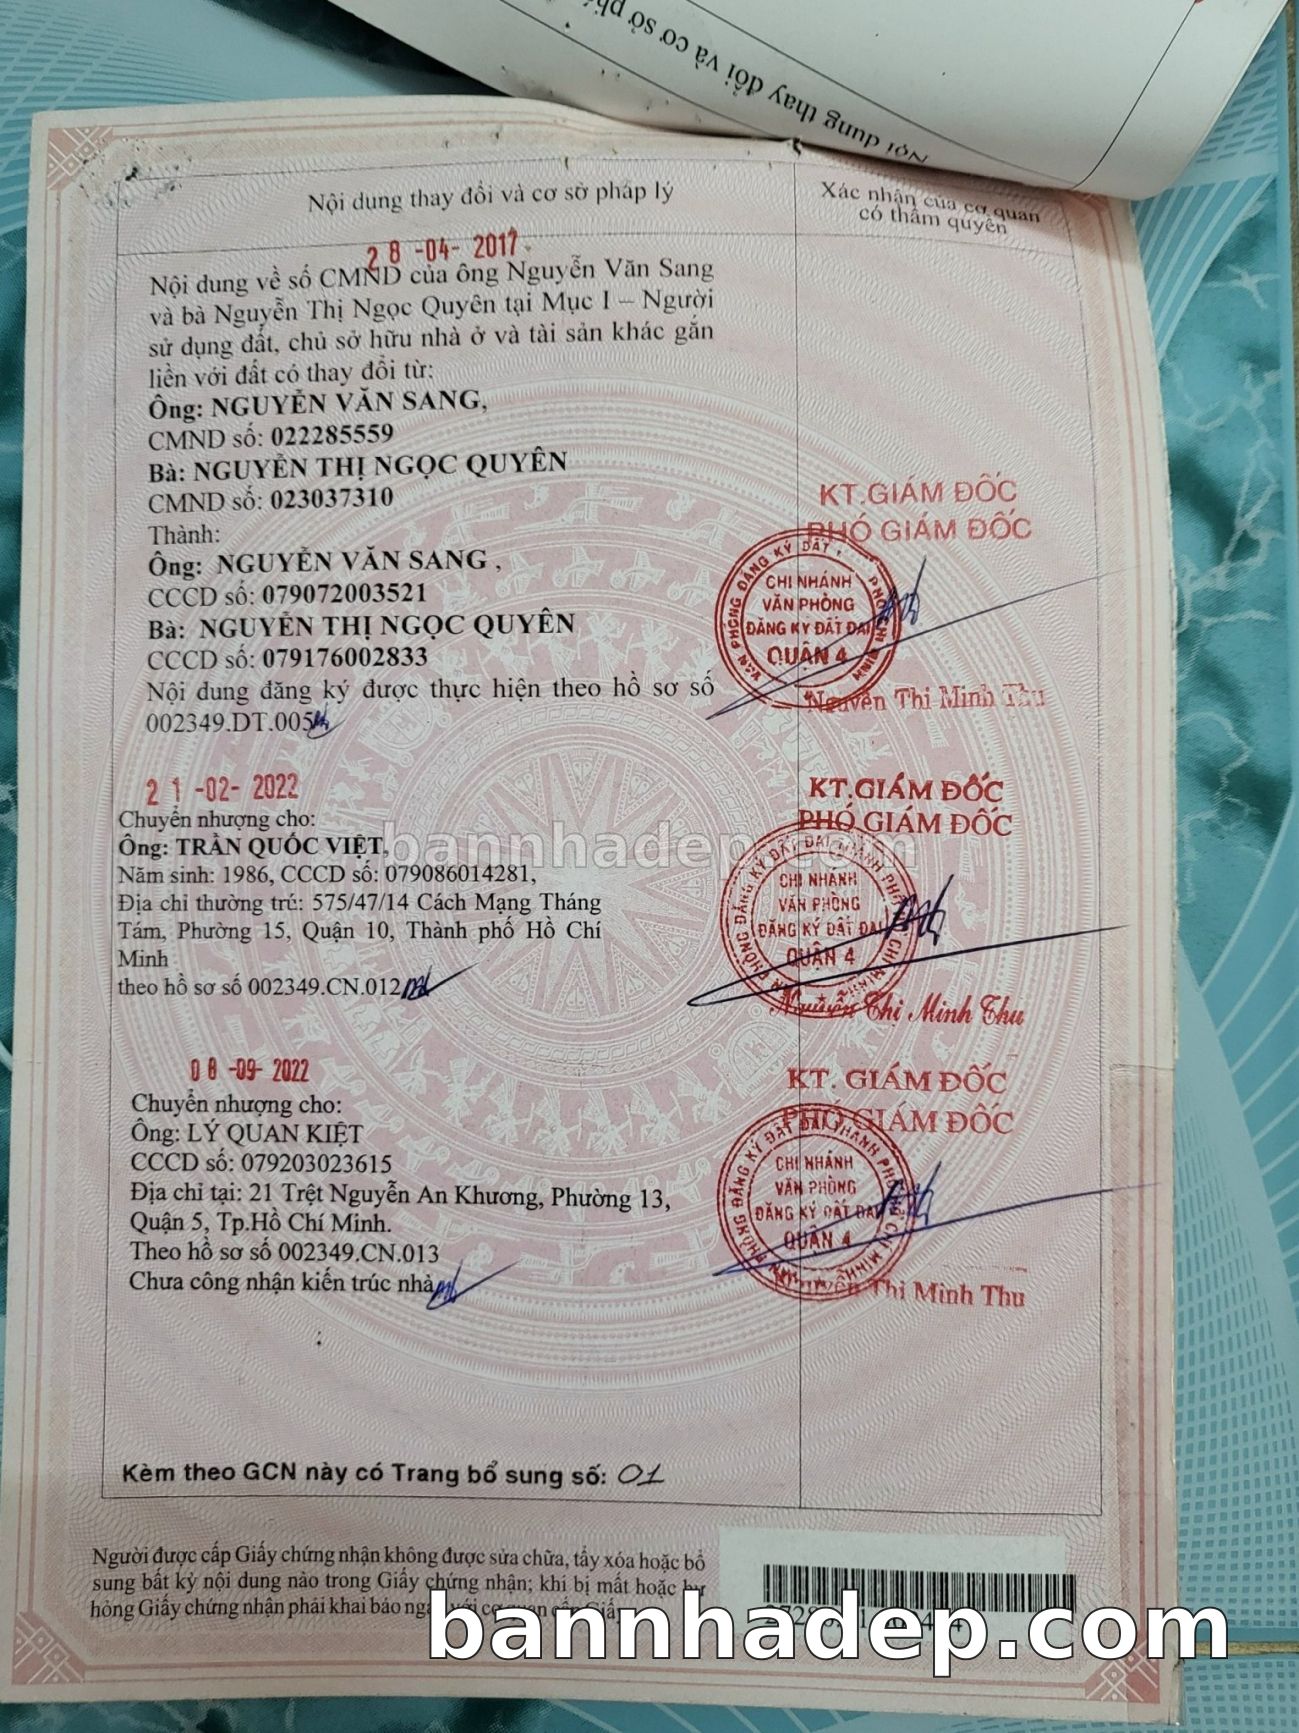 Nội dung thay đổi và cơ sở ph
Nội dung thay đổi và cơ sở pháp lý
Xác nhận của cơ quan
có thẩm quyền
28 -04- 2017
Nội dung về số CMND của ông Nguyễn Văn Sang
và bà Nguyễn Thị Ngọc Quyên tại Mục I – Người
sử dụng đất, chủ sở hữu nhà ở và tài sản khác gắn
liền với đất có thay đổi từ:
Ông: NGUYỄN VĂN SANG,
CMND số: 022285559
Bà: NGUYỄN THỊ NGỌC QUYÊN
CMND số: 023037310
Thành:
Ông: NGUYỄN VĂN SANG ,
CCCD số: 079072003521
Bà: NGUYỄN THỊ NGỌC QUYÊN
CCCD số: 079176002833
Nội dung đăng ký được thực hiện theo hồ sơ số
002349.DT.005
KT.GIÁM ĐỐC
PHÓ GIÁM ĐỐC
CHI NHÁNH
VĂN PHÒNG
ĐĂNG KÝ ĐẤT ĐAI
QUẬN 4
Nguyễn Thị Minh Thu
21 -02- 2022
Chuyển nhượng cho:
Ông: TRẦN QUỐC VIỆT,
Năm sinh: 1986, CCCD số: 079086014281,
Địa chỉ thường trú: 575/47/14 Cách Mạng Tháng
Tám, Phường 15, Quận 10, Thành phố Hồ Chí
Minh
theo hồ sơ số 002349.CN.012
bannhadep.com
KT.GIÁM ĐỐC
PHÓ GIÁM ĐỐC
CHI NHÁNH
VĂN PHÒNG
ĐĂNG KÝ ĐẤT ĐAI
QUẬN 4
Nguyễn Thị Minh Thu
08 -09- 2022
Chuyển nhượng cho:
Ông: LÝ QUAN KIỆT
CCCD số: 079203023615
Địa chỉ tại: 21 Trệt Nguyễn An Khương, Phường 13,
Quận 5, Tp.Hồ Chí Minh.
Theo hồ sơ số 002349.CN.013
Chưa công nhận kiến trúc nhà
KT. GIÁM ĐỐC
PHÓ GIÁM ĐỐC
CHI NHÁNH
VĂN PHÒNG
ĐĂNG KÝ ĐẤT ĐAI
QUẬN 4
Nguyễn Thị Minh Thu
Kèm theo GCN này có Trang bổ sung số: 01
Người được cấp Giấy chứng nhận không được sửa chữa, tẩy xóa hoặc bổ
sung bất kỳ nội dung nào trong Giấy chứng nhận; khi bị mất hoặc hư
hỏng Giấy chứng nhận phải khai báo ngay với cơ quan cấp Giấy.
bannhadep.com